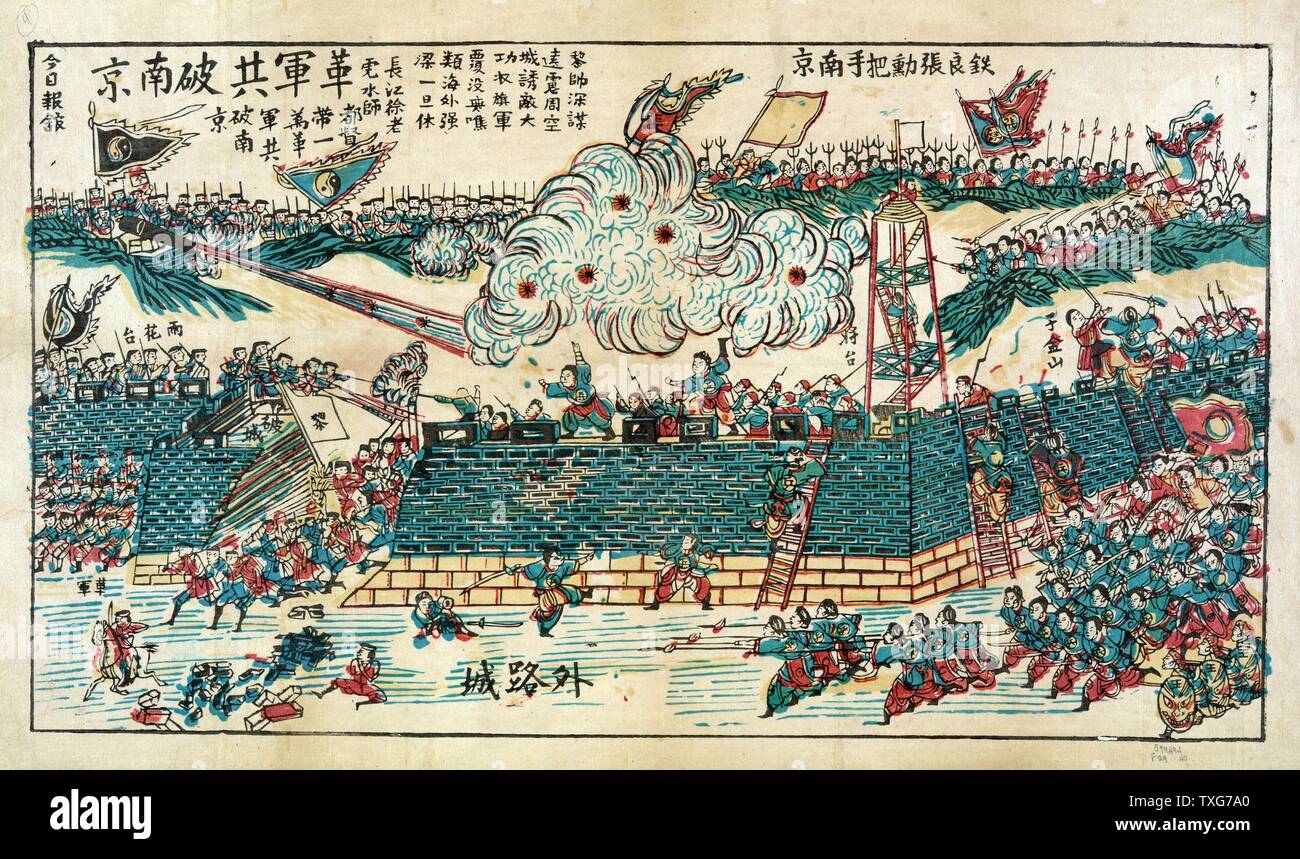 鉄良張勳把手南京
黎帥深謀
遠慮周空
城誘敵大
功收旗軍
覆没奥噍
類海外强
梁一旦休
長江徐老
虎水師
都督
帶一
爲革
軍共
破南
京
革軍共破南京
今日報舘
雨花台
将台
子金山
黎
破城
革軍
外路城
alamy
Image ID: TXG7A0
www.alamy.com